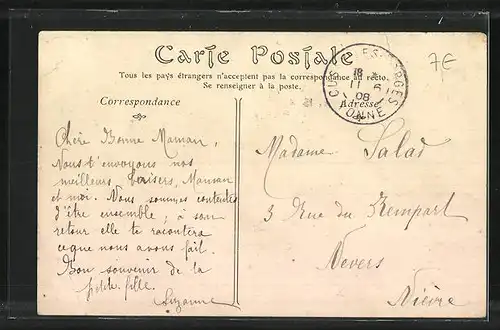 Carte Postale
Tous les pays étrangers n'acceptent pas la correspondance au recto.
Se renseigner à la poste.
7E
Correspondance
Adresse
18
11 6
08
YONNE
Chère Bonne Maman,
Nous t'envoyons nos
meilleurs baisers, Maman
et moi. Nous sommes contentes
d'être ensemble; à son
retour elle te racontera
ce que nous avons fait.
Bon souvenir de la
petite fille.
Suzanne
Madame Salad
3 Rue du Rempart
Nevers
Nièvre